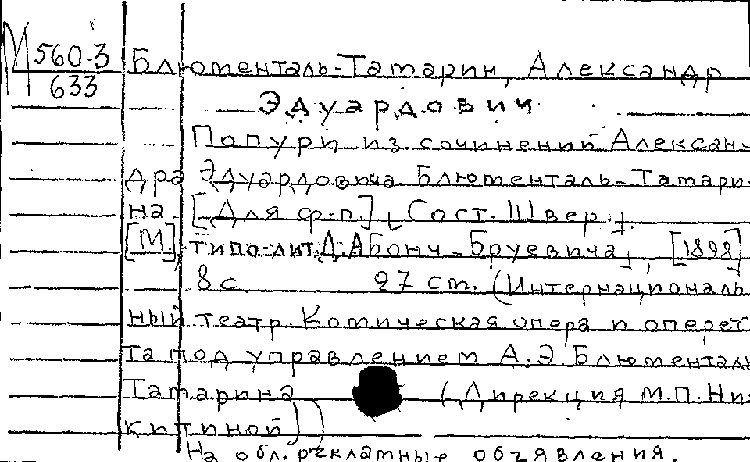 М 560-3
633
Блюменталь-Татарин, Александр
Эдуардович.
Попури из сочинений Алексан-
дра Эдуардовича Блюменталь-Татари-
на. [Для ф-п.], Сост. Швер.
[М], типо-лит. Д. Абонч-Бруевича, [1898]
8 с 27 см. (Интернациональ-
ный театр. Комическая опера и оперет-
та под управлением А.Э. Блюменталь-
Татарина (Дирекция М.П. Ни-
китиной))
На обл. рекламные объявления.